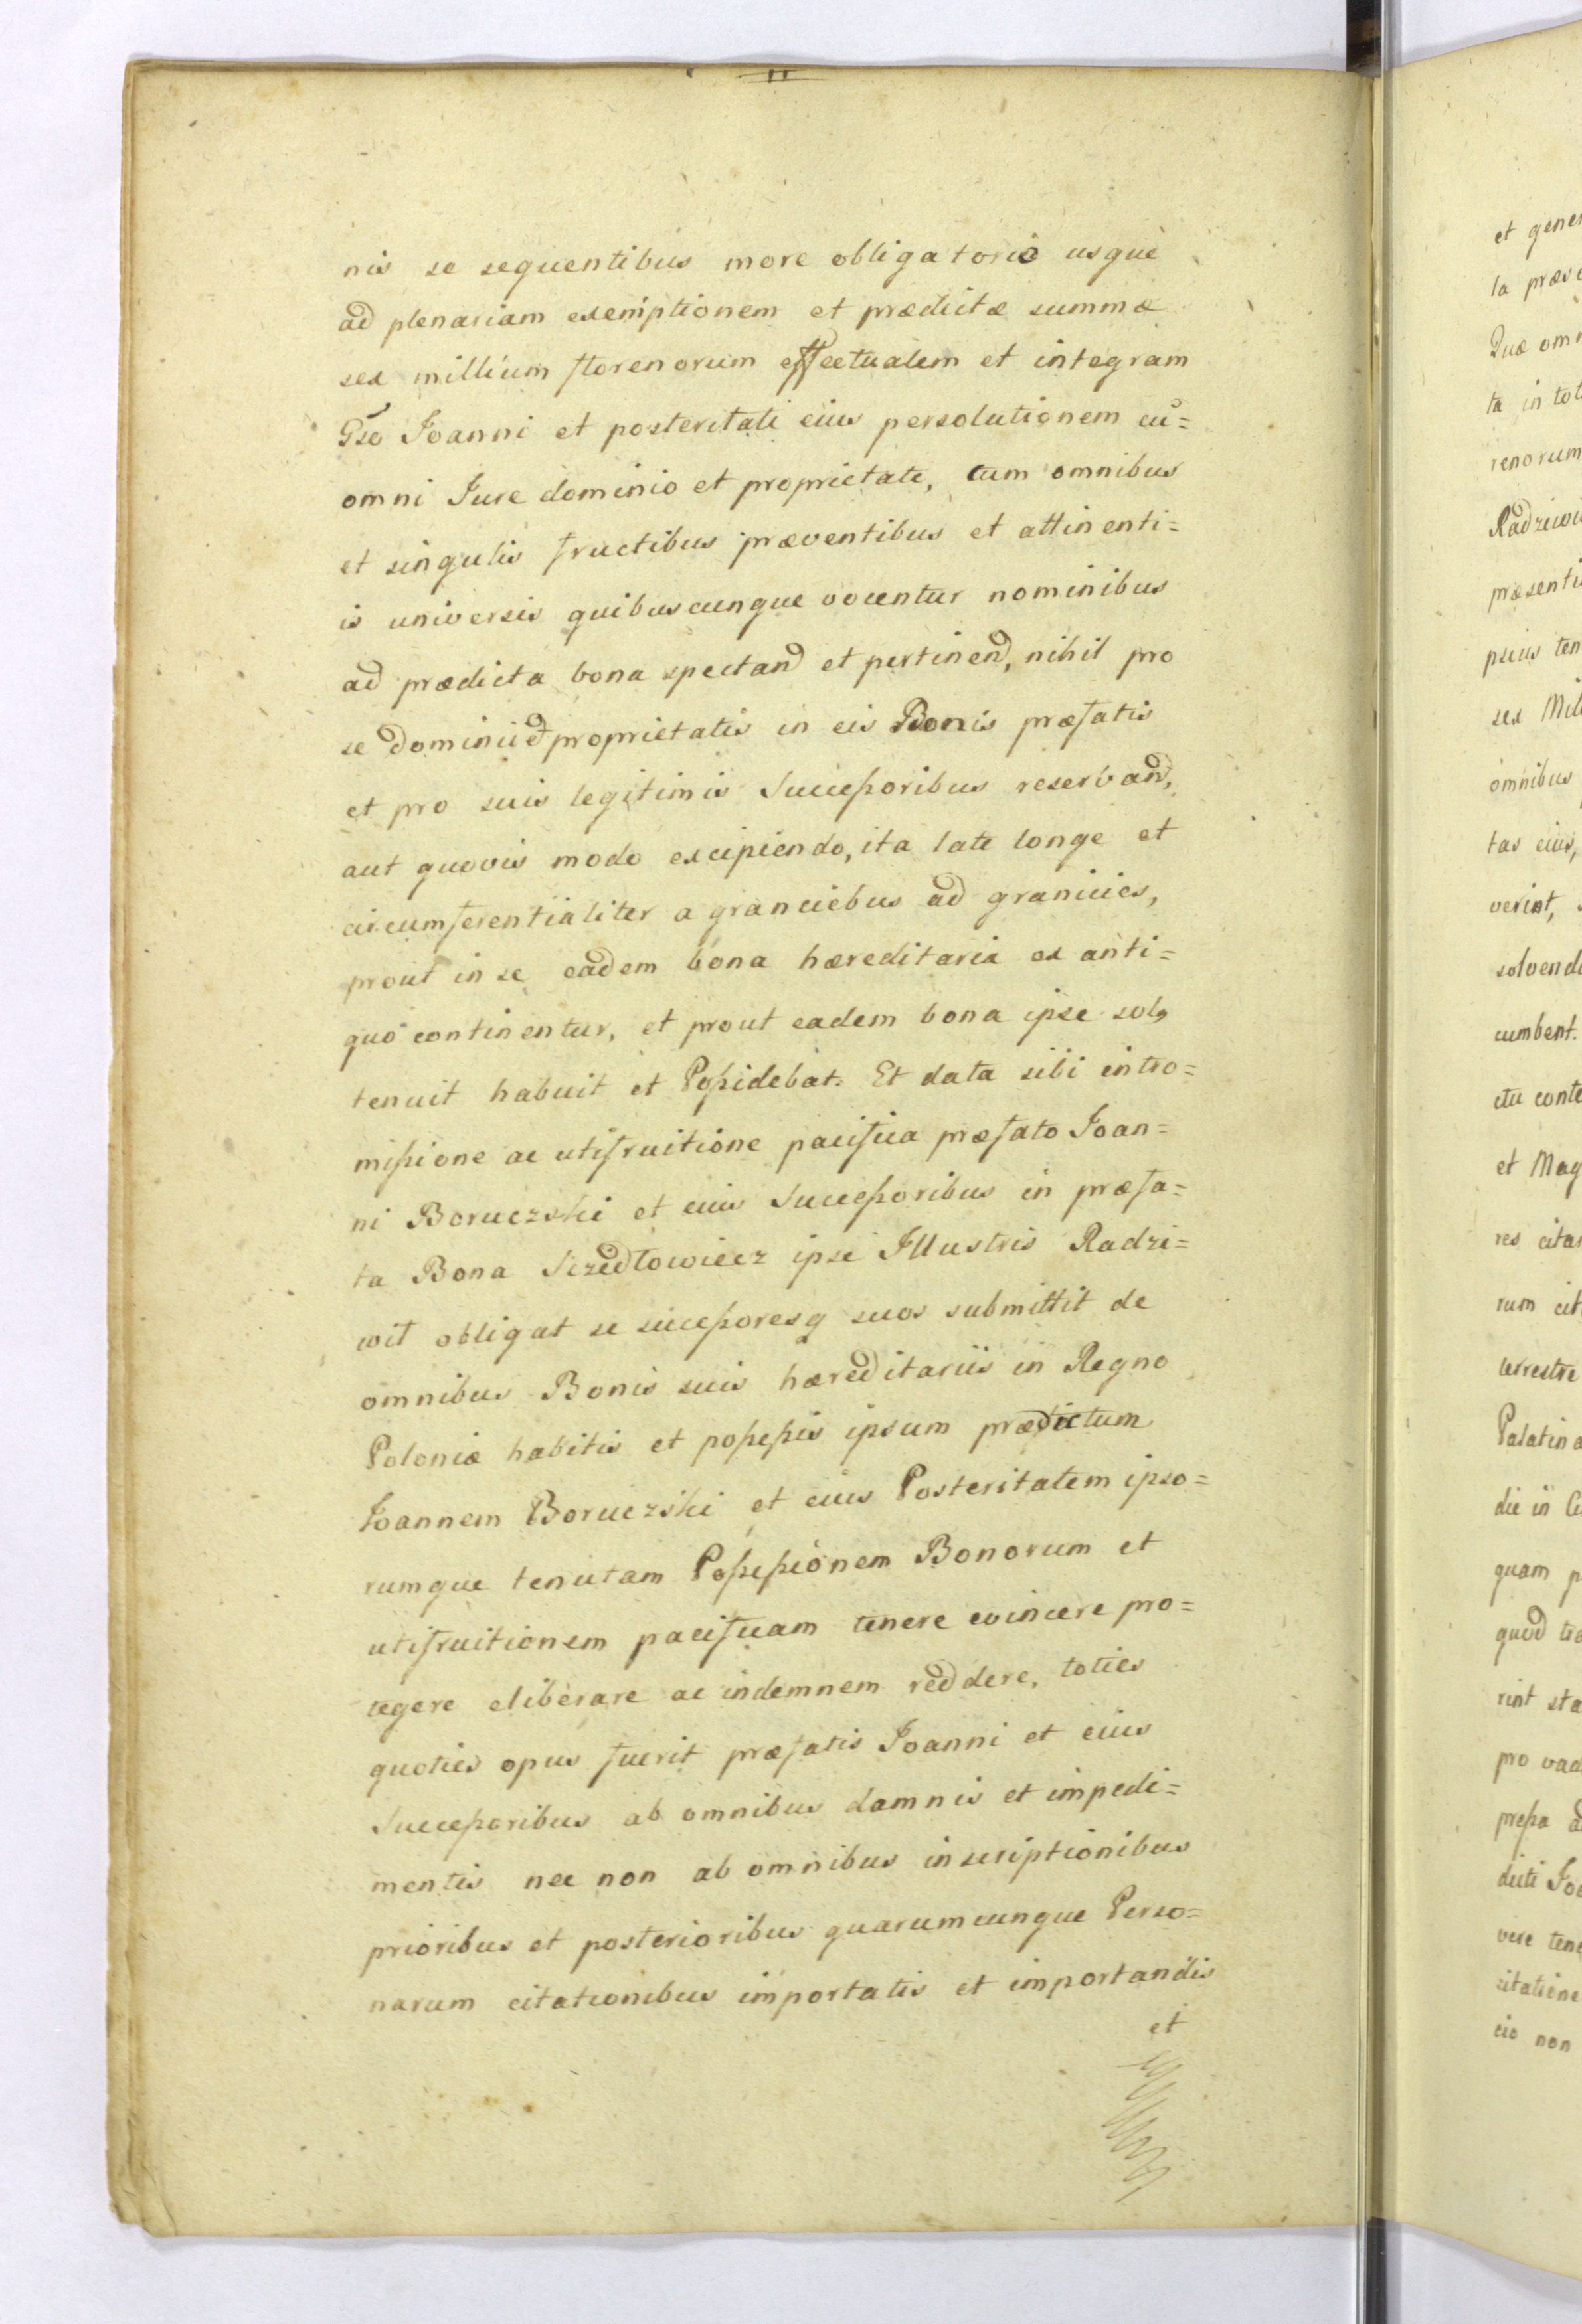 nis se sequentibus more obligatorio usque
ad plenariam exemptionem et prædictæ summæ
sex millium florenorum effectualem et integram
Gso Joanni et posteritati eius persolutionem cu=
omni Jure dominio et proprietate, cum omnibus
et singulis fructibus præventibus et attinenti=
is universis quibuscunque vocentur nominibus
ad prædicta bona spectand et pertinend, nihil pro
se dominii et proprietatis in eis Bonis præfatis
et pro suis legitimis Successoribus reservand,
aut quovis modo excipiendo, ita late longe et
circumferentialiter a granciebus ad granicies,
prout in se eadem bona hæreditaria ex anti=
quo continentur, et prout eadem bona ipse solq
tenuit habuit et Possidebat. Et data sibi intro=
missione ac utifruitione pacifica præfato Joan=
ni Boruczski et eius Successoribus in præfa=
ta Bona Sczedlowiecz ipse Illustris Radzi=
wil obligat se successoresq suos submittit de
omnibus Bonis suis hæreditariis in Regno
Poloniæ habitis et possessis ipsum prædictum
Joannem Boruczski et eius Posteritatem ipso=
rumque tenutam Possessionem Bonorum et
utifruitionem pacificam tenere evincere pro=
tegere eliberare ac indemnem reddere, toties
quoties opus fuerit præfatis Joanni et eius
Successoribus ab omnibus damnis et impedi=
mentis nec non ab omnibus inscriptionibus
prioribus et posterioribus quarumcunque Perso=
narum citationibus importatis et importandis
et
et gene
la præs
Quæ om
ta in tot
renorum
Radziwi
præsenti
psius ten
sex Mil
omnibus
tas eius,
verint,
solvend
cumbent.
ctu conte
et Mag
res cita
rum cit
terrestre
Palatin
die in
quam p
quod
rint sta
pro vad
pressa
dicti Jo
vere tene
citatione
cio non